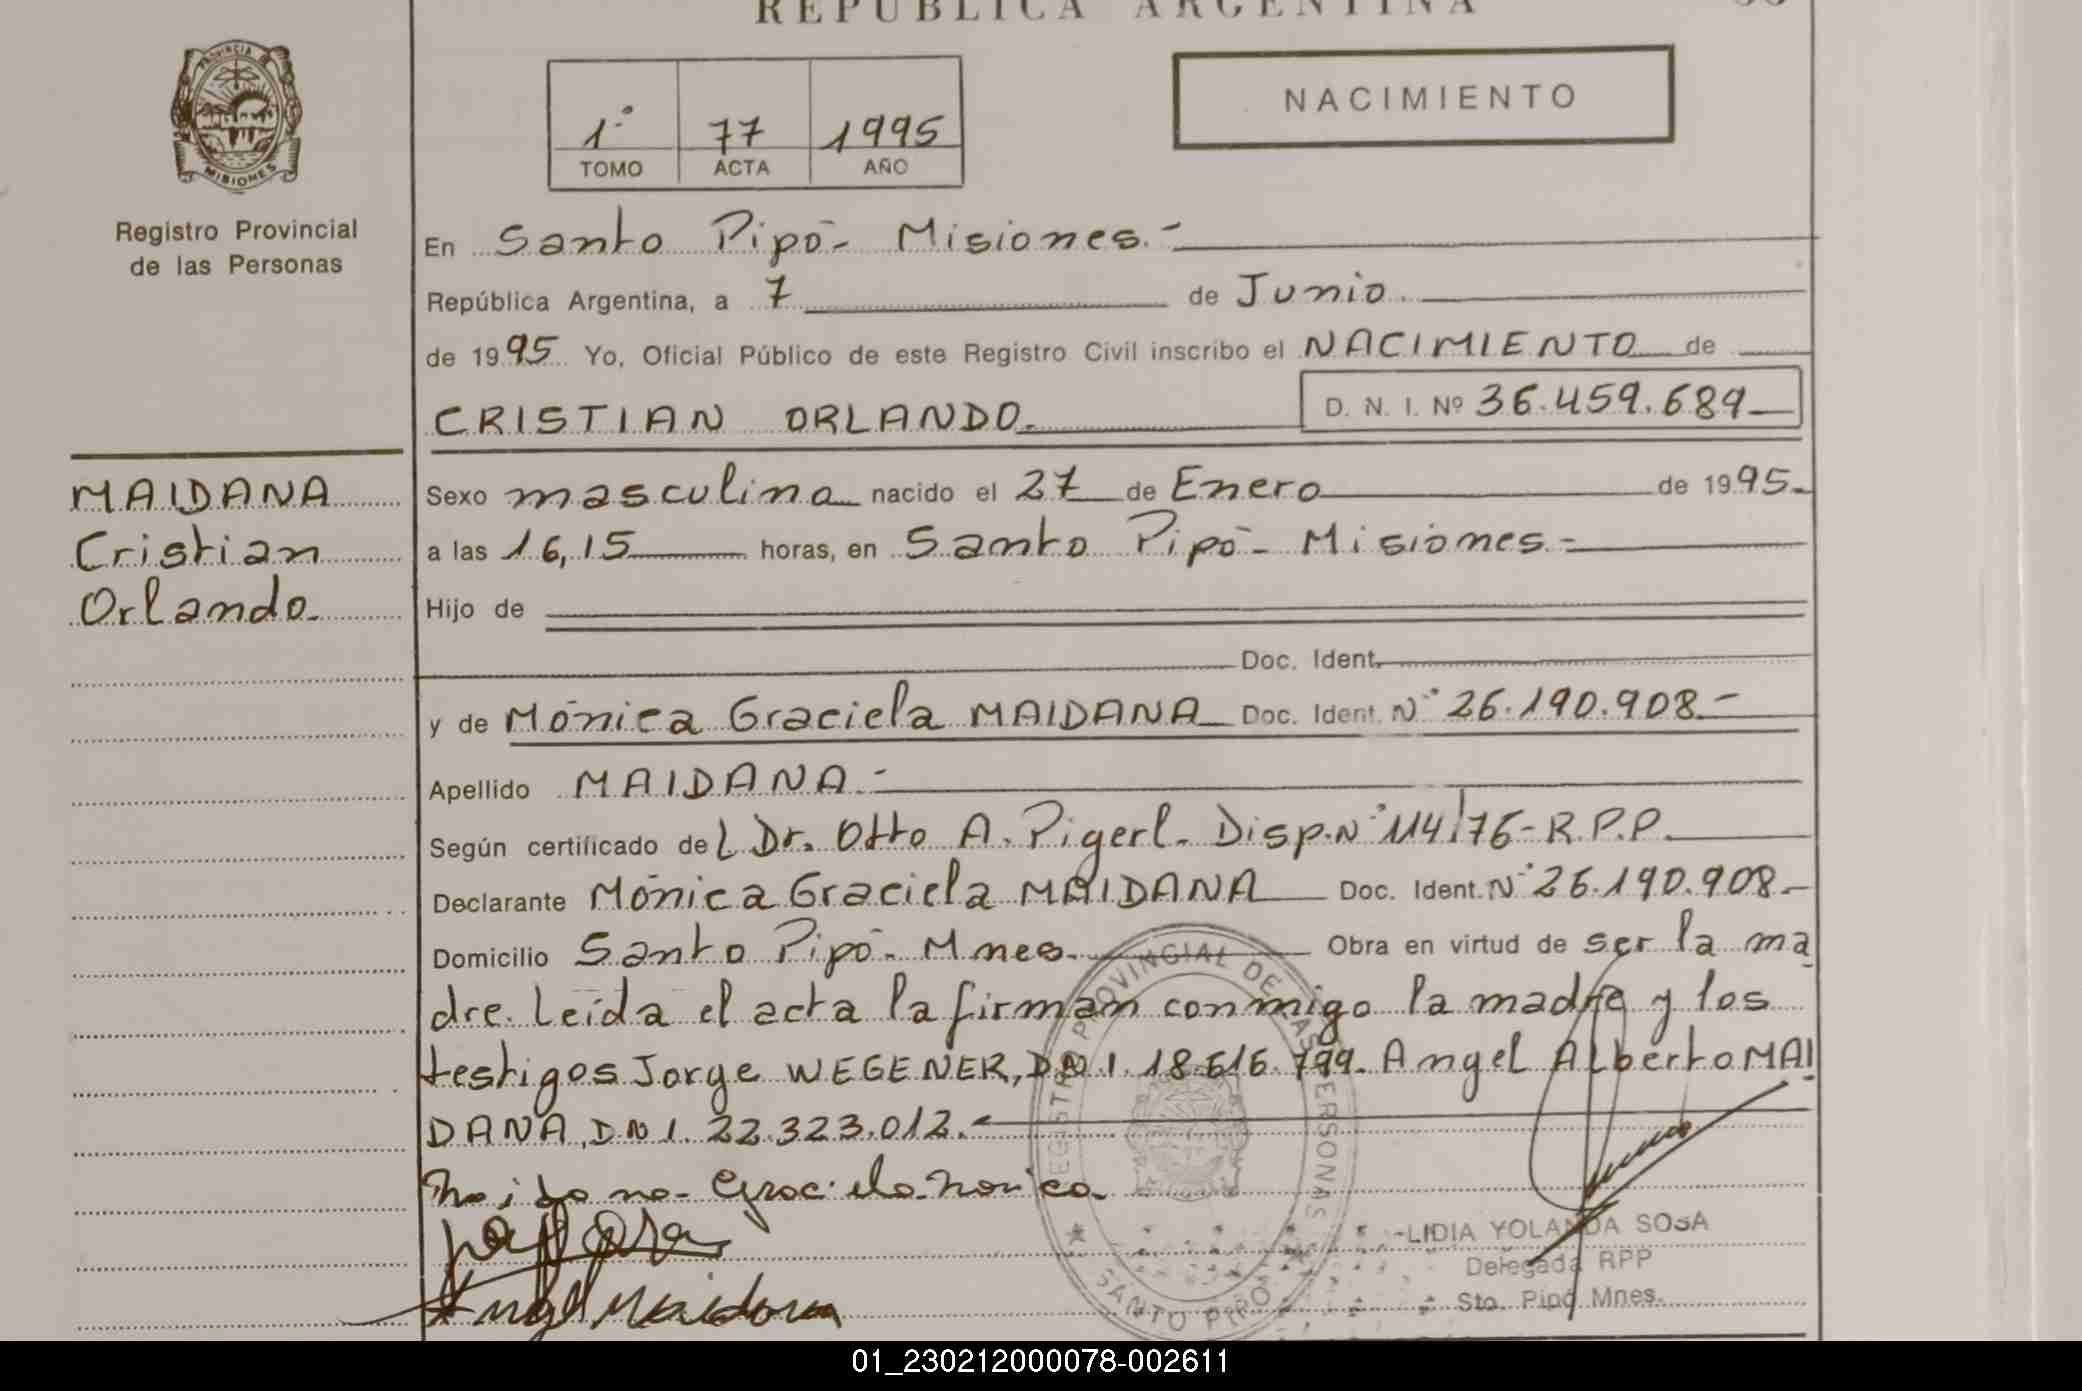 REPUBLICA ARGENTINA
PROVINCIA DE
MISIONES
Registro Provincial
de las Personas
1º 77 1995
TOMO ACTA AÑO
NACIMIENTO
En Santo Pipó- Misiones.-
República Argentina, a 7 de Junio.
de 1995 Yo, Oficial Público de este Registro Civil inscribo el NACIMIENTO de
CRISTIAN ORLANDO. D. N. I. Nº 36.459.689
MAIDANA
Cristian
Orlando.
Sexo masculino nacido el 27 de Enero de 1995.
a las 16,15 horas, en Santo Pipó- Misiones.-
Hijo de
Doc. Ident.
y de Mónica Graciela MAIDANA Doc. Ident. Nº 26.190.908.-
Apellido MAIDANA.-
Según certificado del Dr. Otto A. Pigerl. Disp. Nº 114/76-R.P.P.
Declarante Mónica Graciela MAIDANA Doc. Ident. Nº 26.190.908-
Domicilio Santo Pipó- Mnes. Obra en virtud de ser la ma
dre. Leída el acta la firman conmigo la madre y los
testigos Jorge WEGENER, DNI. 18.616.799. Angel Alberto MAI
DANA, DNI. 22.323.012.
REGISTRO PROVINCIAL DE LAS PERSONAS
SANTO PIPÓ
Maidana Graciela Monica.
Angel Maidana
LIDIA YOLANDA SOSA
Delegada RPP
Sto. Pipó Mnes.
01_230212000078-002611